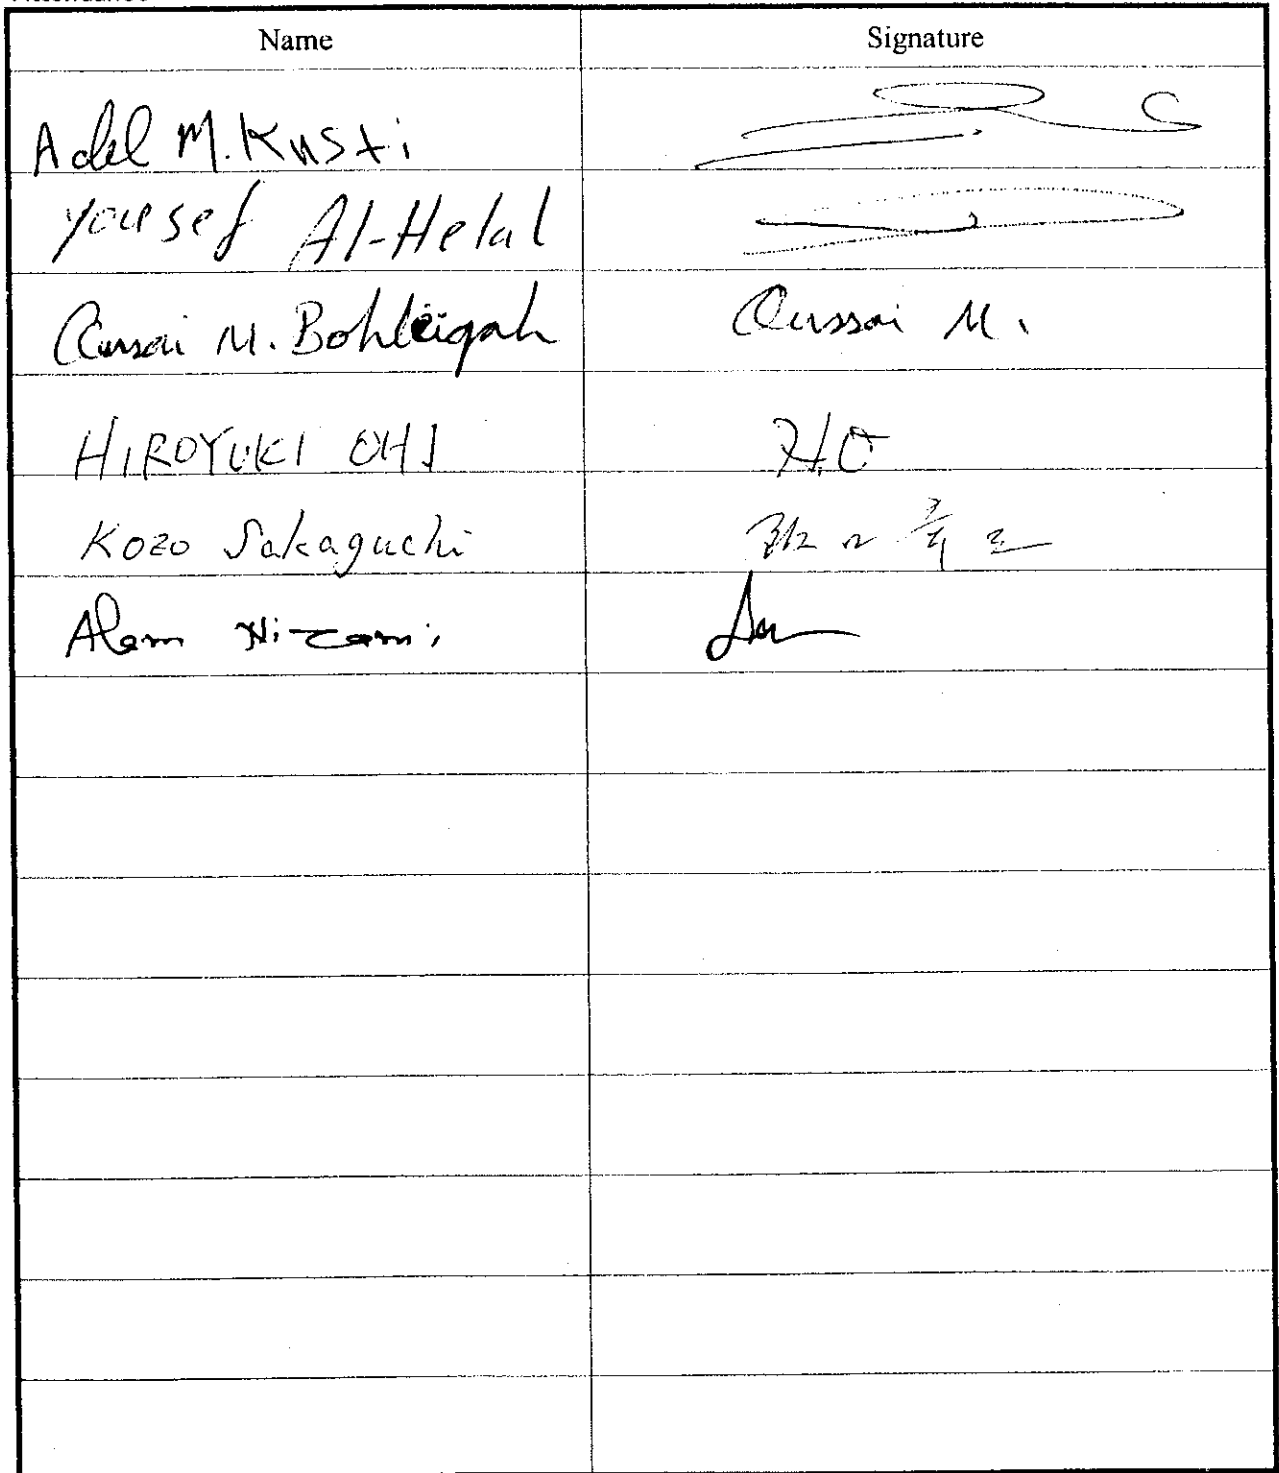 Name Signature
Adel M. Kusti
Yousef Al-Helal
Qussai M. Bohleigah Qussai M.
HIROYUKI OHJ H.O
Kozo Sakaguchi
Alam Nizami